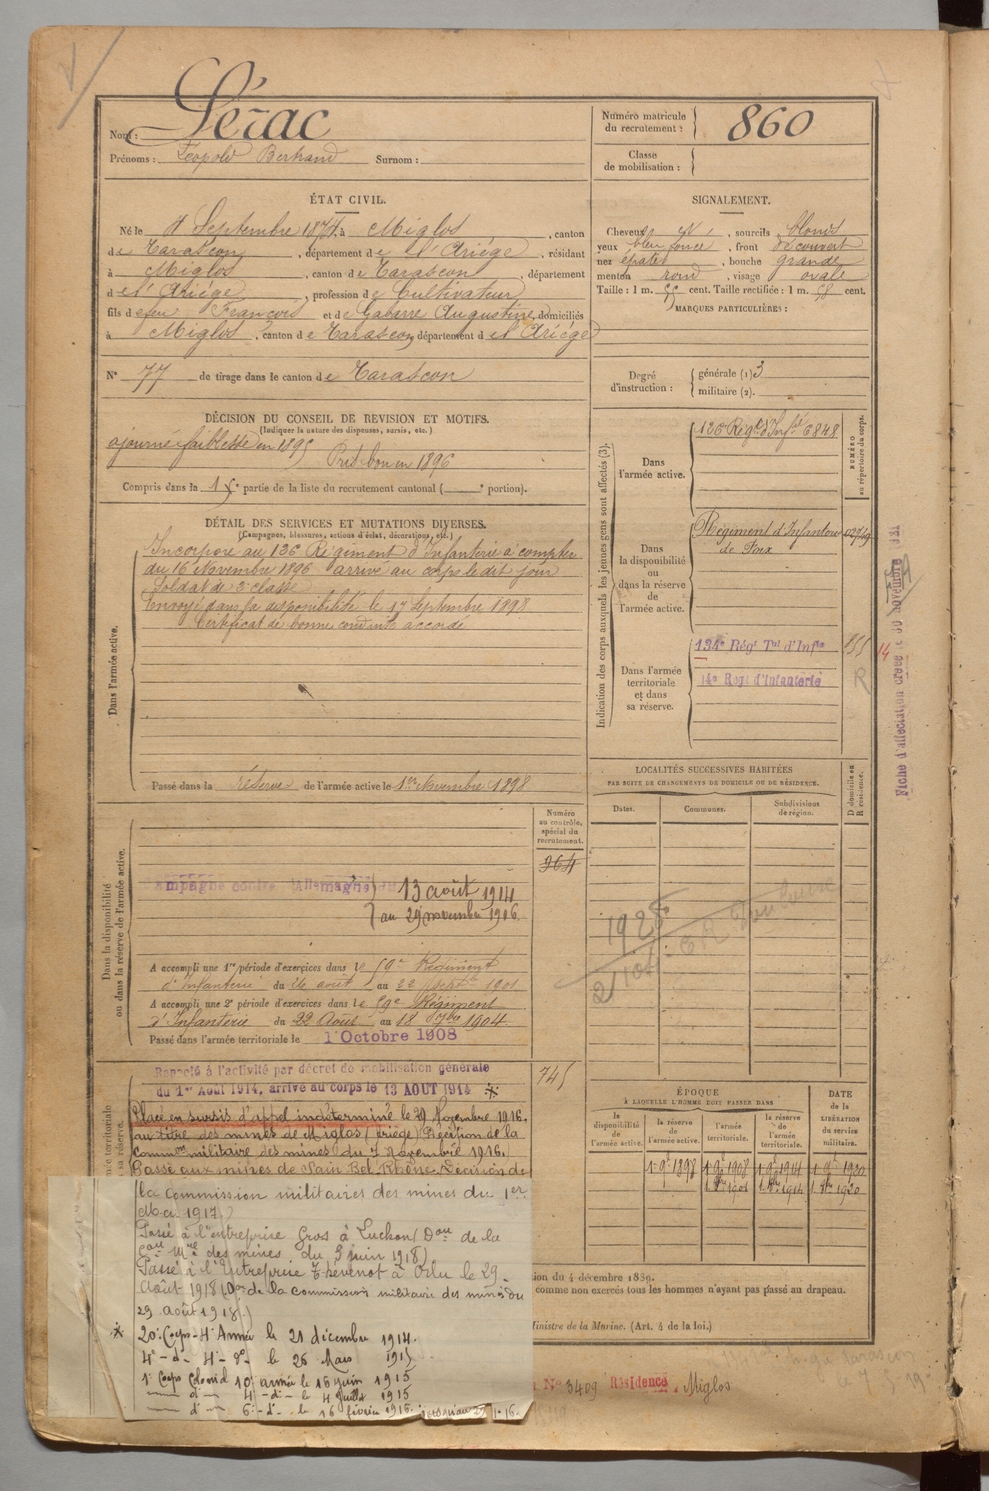 Nom : Lézac
Prénoms : Léopold Bertrand Surnom :
Numéro matricule du recrutement : 860
Classe de mobilisation :
ÉTAT CIVIL.
Né le 4 Septembre 1874, à Miglos, canton
de Tarascon, département de l'Ariège, résidant
à Miglos, canton de Tarascon, département
de l'Ariège, profession de Cultivateur
fils de feu François et de Gabarre Augustine, domiciliés
à Miglos, canton de Tarascon, département de l'Ariège
N° 77 de tirage dans le canton de Tarascon
SIGNALEMENT.
Cheveux, sourcils blonds
yeux bleu foncé, front découvert
nez épaté, bouche grande
menton rond, visage ovale
Taille : 1 m. 55 cent. Taille rectifiée : 1 m. 58 cent.
MARQUES PARTICULIÈRES :
Degré d'instruction : générale (1) 3
militaire (2).
DÉCISION DU CONSEIL DE REVISION ET MOTIFS.
(Indiquer la nature des dispenses, sursis, etc.)
ajourné faiblesse en 1895
Pris bon en 1896
Compris dans la 1re partie de la liste du recrutement cantonal ( e portion).
DÉTAIL DES SERVICES ET MUTATIONS DIVERSES.
(Campagnes, blessures, actions d'éclat, décorations, etc.)
Dans l'armée active.
Incorporé au 126e Régiment d'Infanterie à compter
du 16 Novembre 1896 arrivé au corps le dit jour
Soldat de 2e classe
Envoyé dans la disponibilité le 17 Septembre 1898
Certificat de bonne conduite accordé
Passé dans la réserve de l'armée active le 1er Novembre 1898
Indication des corps auxquels les jeunes gens sont affectés (3).
NUMÉRO au répertoire du corps.
Dans l'armée active.
126 Régt d'Infie 6848
Dans la disponibilité ou dans la réserve de l'armée active.
Régiment d'Infanterie
de Foix
Dans l'armée territoriale et dans sa réserve.
134e Régt Tal d'Infie 14
14e Régt d'Infanterie R
Fiche d'affectation créée le 30 novembre
LOCALITÉS SUCCESSIVES HABITÉES
PAR SUITE DE CHANGEMENTS DE DOMICILE OU DE RÉSIDENCE.
Dates. Communes. Subdivisions de région. D domicile ou R résidence.
Dans la disponibilité ou dans la réserve de l'armée active.
Numéro au contrôle spécial du recrutement.
964
Campagne contre l'Allemagne du 13 août 1914
au 29 novembre 1916
1928
Toulouse
A accompli une 1re période d'exercices dans le 59e Régiment
d'Infanterie du août au 22 septbre 1901
A accompli une 2e période d'exercices dans le 59e Régiment
d'Infanterie du 22 Août au 18 7bre 1904
Passé dans l'armée territoriale le 1 Octobre 1908
Rappelé à l'activité par décret de mobilisation générale
du 1er Août 1914, arrivé au corps le 13 AOUT 1914 *
745
Placé en sursis d'appel indéterminé le 29 Novembre 1916
au titre des mines de Miglos (Ariège) Décision de la
common militaire des mines du 7 Novembre 1916.
Passé aux mines de Sain Bel Rhône. Décision de
la Commission militaires des mines du 1er
Mai 1917)
Passé à l'entreprise Gros à Luchon (Don de la
Con Mre des mines du 5 juin 1918)
Passé à l'Entreprise Thévenot à Orlu le 29
Août 1918 (Don de la commission militaire des mines du
29 août 1918)
* 20e Corps - 4e Armée le 21 décembre 1914.
4e - d - 4e - d - le 26 Mars 1915
1er Corps Colonial 10e armée le 16 juin 1915
d° - 4e - d - le 4 Juillet 1915
d° - 6e - d - le 16 février 1916.
ÉPOQUE
À LAQUELLE L'HOMME DOIT PASSER DANS
la disponibilité de l'armée active.
la réserve de l'armée active.
l'armée territoriale.
la réserve de l'armée territoriale.
DATE de la LIBÉRATION du service militaire.
1er 9bre 1898 1er 9bre 1908 1er 9bre 1914 1er 9bre 1920
tion du 4 décembre 1889.
comme non exercés tous les hommes n'ayant pas passé au drapeau.
Ministre de la Marine. (Art. 4 de la loi.)
N° 3409 Résidence Miglos